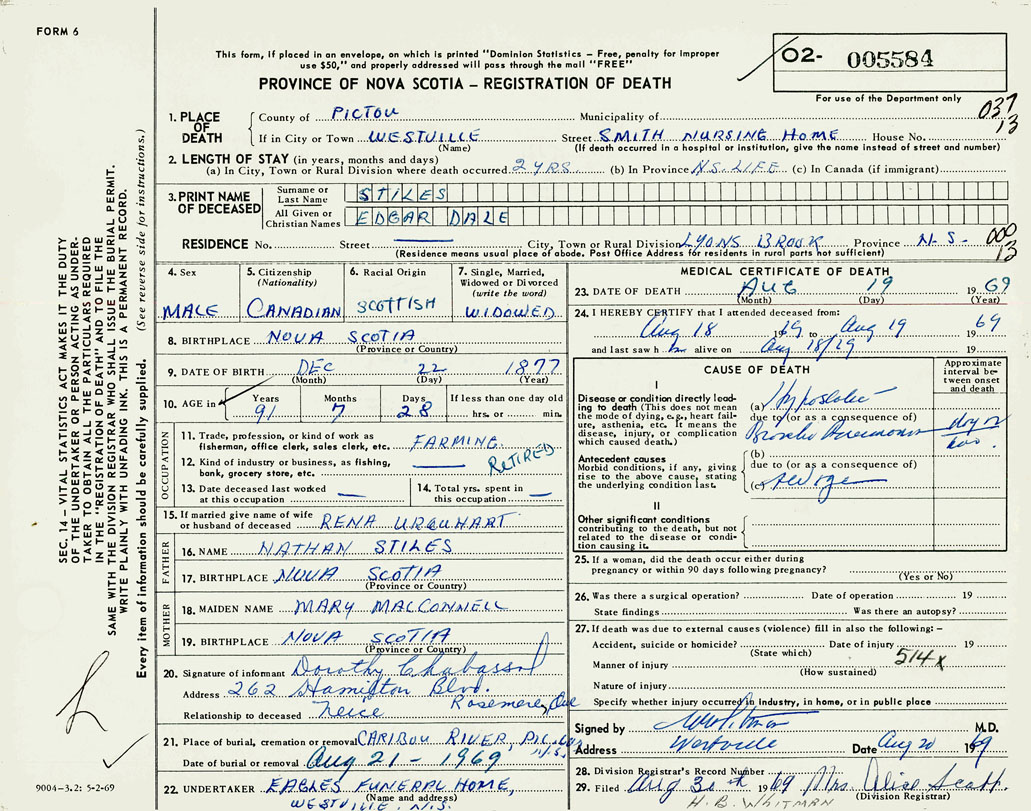 FORM 6
This form, if placed in an envelope, on which is printed "Dominion Statistics – Free, penalty for improper
use $50," and properly addressed will pass through the mail "FREE"
O2- 005584
For use of the Department only
PROVINCE OF NOVA SCOTIA – REGISTRATION OF DEATH
037
13
1. PLACE OF DEATH
County of PICTOU Municipality of
If in City or Town WESTVILLE Street SMITH NURSING HOME House No.
(Name) (If death occurred in a hospital or institution, give the name instead of street and number)
2. LENGTH OF STAY (in years, months and days)
(a) In City, Town or Rural Division where death occurred 2 YRS (b) In Province N.S. LIFE (c) In Canada (if immigrant)
3. PRINT NAME OF DECEASED
Surname or Last Name STILES
All Given or Christian Names EDGAR DALE
RESIDENCE No. Street City, Town or Rural Division LYONS BROOK Province N.S.
000
13
(Residence means usual place of abode. Post Office Address for residents in rural parts not sufficient)
4. Sex
MALE
5. Citizenship (Nationality)
CANADIAN
6. Racial Origin
SCOTTISH
7. Single, Married, Widowed or Divorced (write the word)
WIDOWED
8. BIRTHPLACE NOVA SCOTIA
(Province or Country)
9. DATE OF BIRTH DEC 22 1877
(Month) (Day) (Year)
10. AGE in
Years Months Days If less than one day old
91 7 28 hrs. or min.
OCCUPATION
11. Trade, profession, or kind of work as fisherman, office clerk, sales clerk, etc. FARMING
RETIRED
12. Kind of industry or business, as fishing, bank, grocery store, etc.
13. Date deceased last worked at this occupation
14. Total yrs. spent in this occupation
15. If married give name of wife or husband of deceased RENA URQUHART
FATHER
16. NAME NATHAN STILES
17. BIRTHPLACE NOVA SCOTIA
(Province or Country)
MOTHER
18. MAIDEN NAME MARY MACCONNELL
19. BIRTHPLACE NOVA SCOTIA
(Province or Country)
20. Signature of informant Dorothy Chabassol
Address 262 Hamilton Blvd.
Rosemere, Que
Relationship to deceased Neice
21. Place of burial, cremation or removal CARIBOU RIVER, PIC. CO.
N.S.
Date of burial or removal Aug 21 - 1969
22. UNDERTAKER EAGLES FUNERAL HOME,
(Name and address)
WESTVILLE, N.S.
MEDICAL CERTIFICATE OF DEATH
23. DATE OF DEATH AUG 19 1969
(Month) (Day) (Year)
24. I HEREBY CERTIFY that I attended deceased from:
Aug 18 1969 to Aug 19 1969
and last saw h im alive on Aug 18/69 19
CAUSE OF DEATH
Approximate interval between onset and death
I
Disease or condition directly leading to death (This does not mean the mode of dying, e.g., heart failure, asthenia, etc. It means the disease, injury, or complication which caused death.)
(a) Hypostatic
due to (or as a consequence of)
Broncho Pneumonia
(b)
Antecedent causes
Morbid conditions, if any, giving rise to the above cause, stating the underlying condition last.
due to (or as a consequence of)
(c)
II
Other significant conditions contributing to the death, but not related to the disease or condition causing it.
25. If a woman, did the death occur either during pregnancy or within 90 days following pregnancy?
(Yes or No)
26. Was there a surgical operation? Date of operation 19
State findings Was there an autopsy?
27. If death was due to external causes (violence) fill in also the following: –
Accident, suicide or homicide? Date of injury 19
(State which)
514x
Manner of injury
(How sustained)
Nature of injury
Specify whether injury occurred in Industry, in home, or in public place
Signed by M.D.
Address Westville Date Aug 20 1969
28. Division Registrar's Record Number
29. Filed Aug 30th 1969 Mrs. Alice Scott
(Division Registrar)
H. B. WHITMAN
SEC. 14 – VITAL STATISTICS ACT MAKES IT THE DUTY
OF THE UNDERTAKER OR PERSON ACTING AS UNDER-
TAKER TO OBTAIN ALL THE PARTICULARS REQUIRED
IN THE "REGISTRATION OF DEATH" AND TO FILE THE
SAME WITH THE DIVISION REGISTRAR WHO SHALL ISSUE THE BURIAL PERMIT.
WRITE PLAINLY WITH UNFADING INK. THIS IS A PERMANENT RECORD.
Every item of information should be carefully supplied. (See reverse side for instructions.)
9004–3.2: 5-2-69